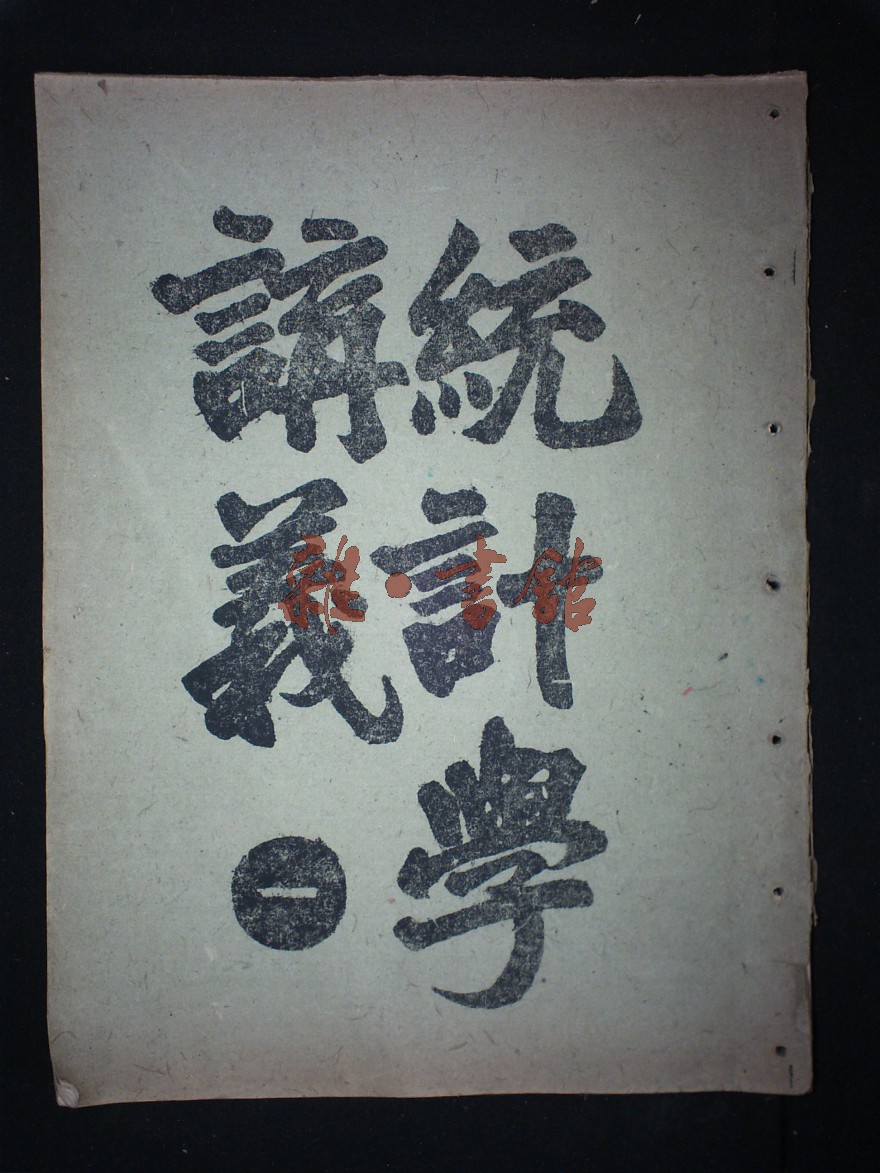 統計學
講義
一
雜·書館